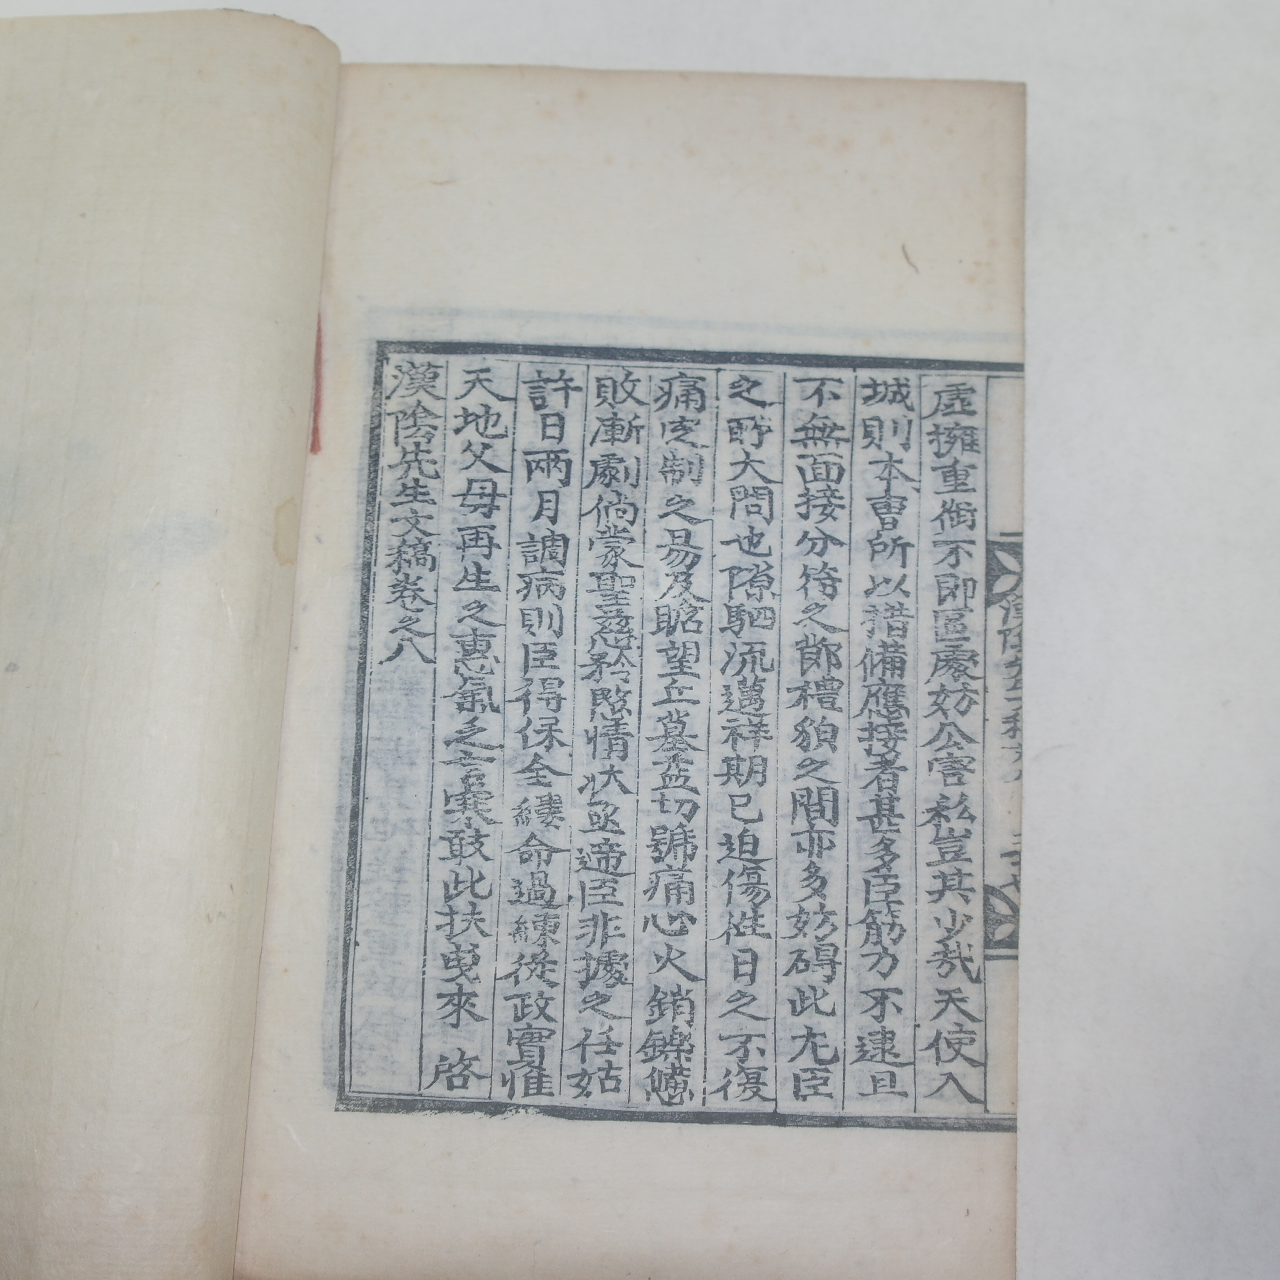 虛擁重銜不即區處妨公害私豈其少哉天使入
城則本曹所以措備應接者甚多臣筋力不逮且
不無面接分符之節禮貌之間亦多妨碍此尤臣
之所大悶也隙駟流邁祥期已迫傷往日之不復
痛定制之易及瞻望丘墓益切號痛心火銷鑠憊
敗漸劇倘蒙聖慈矜愍情狀亟遞臣非據之任姑
許日兩月調病則臣得保全縷命過練從政實惟
天地父母再生之惠氣乏言寒敢此扶曳來 啓
漢陰先生文稿卷之八